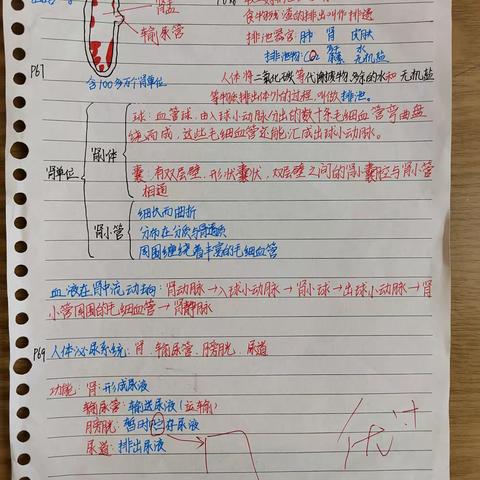 肾盂
输尿管
食物残渣的排出叫作排遗
排泄器官：肺 肾 皮肤
排泄物：CO₂ 尿素 水 无机盐
含100多万个肾单位
P67
人体将二氧化碳等代谢废物、多余的水和无机盐
等物质排出体外的过程，叫做排泄。
球：血管球，由入球小动脉分出的数十条毛细血管弯曲盘
绕而成，这些毛细血管还能汇成出球小动脉。
肾小体
囊：有双层壁，形状囊状，双层壁之间的肾小囊腔与肾小管
相通
肾单位
细长而曲折
肾小管
分布在皮质与髓质
周围缠绕着丰富的毛细血管
血液在肾中流动方向：肾动脉→入球小动脉→肾小球→出球小动脉→肾
小管周围的毛细血管→肾静脉
P69 人体泌尿系统：肾、输尿管、膀胱、尿道
功能：肾：形成尿液
输尿管：输送尿液（运输）
膀胱：暂时贮存尿液
尿道：排出尿液
优